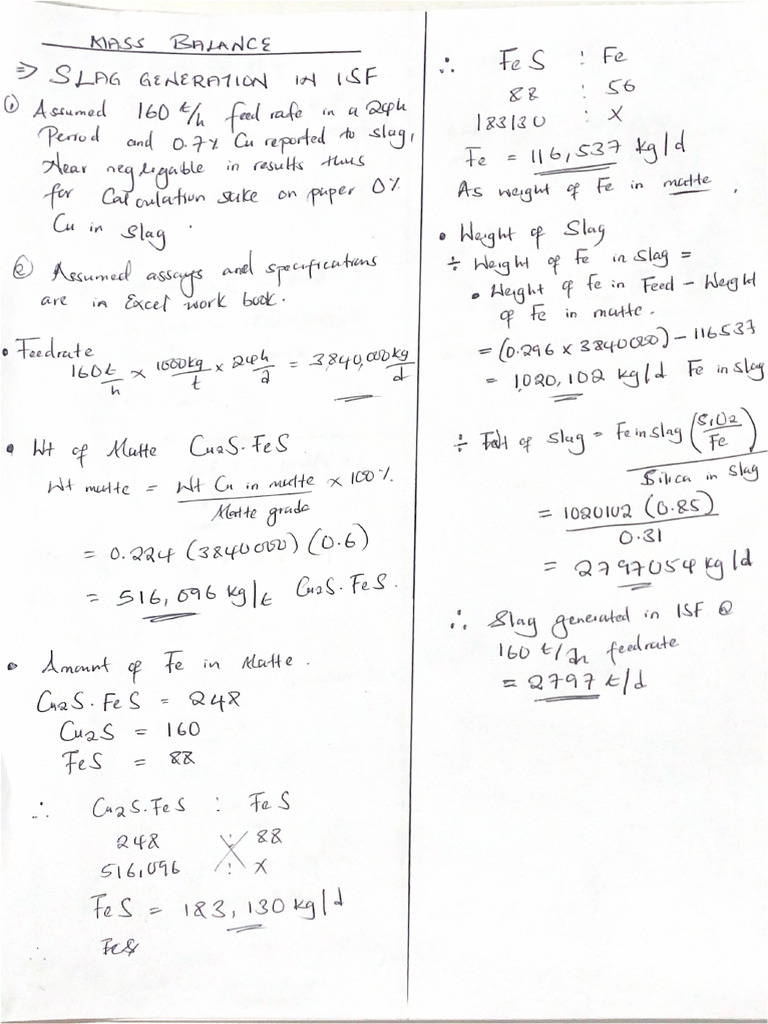 MASS BALANCE
⇒ SLAG GENERATION IN ISF
① Assumed 160 t/h feed rate in a 24h
Period and 0.7% Cu reported to slag,
Near negligable in results thus
for Calculation sake on paper 0%
Cu in slag.
② Assumed assays and specifications
are in Excel work book.
• Feedrate
160t/h × 1000kg/t × 24h/d = 3,840,000kg/d
• Wt of Matte Cu2S.FeS
Wt matte = Wt Cu in matte / Matte grade × 100%
= 0.224 (3840000) (0.6)
= 516,096 kg/t Cu2S.FeS.
• Amount of Fe in Matte.
Cu2S.FeS = 248
Cu2S = 160
FeS = 88
∴ Cu2S.FeS : FeS
248 : 88
516,096 : x
FeS = 183,130 kg/d
∴ FeS : Fe
88 : 56
183130 : x
Fe = 116,537 kg/d
As weight of Fe in matte.
• Weight of Slag
÷ Weight of Fe in slag =
• Weight of Fe in Feed - Weight
of Fe in matte.
= (0.296 × 3840000) - 116537
= 1,020,102 kg/d Fe in slag
÷ of slag = Fe in slag (SiO2/Fe) / Silica in slag
= 1020102 (0.85) / 0.31
= 2797054 kg/d
∴ Slag generated in ISF @
160 t/h feedrate
= 2797 t/d